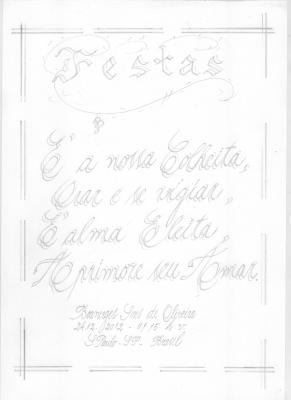 Festas
É a nossa Colheita,
Orar e se vigiar,
É alma Eleita,
Aprimore seu Amar.
de Oliveira
24.12.2012 - 01:15 h.v.
S.Paulo - S.P. Brasil